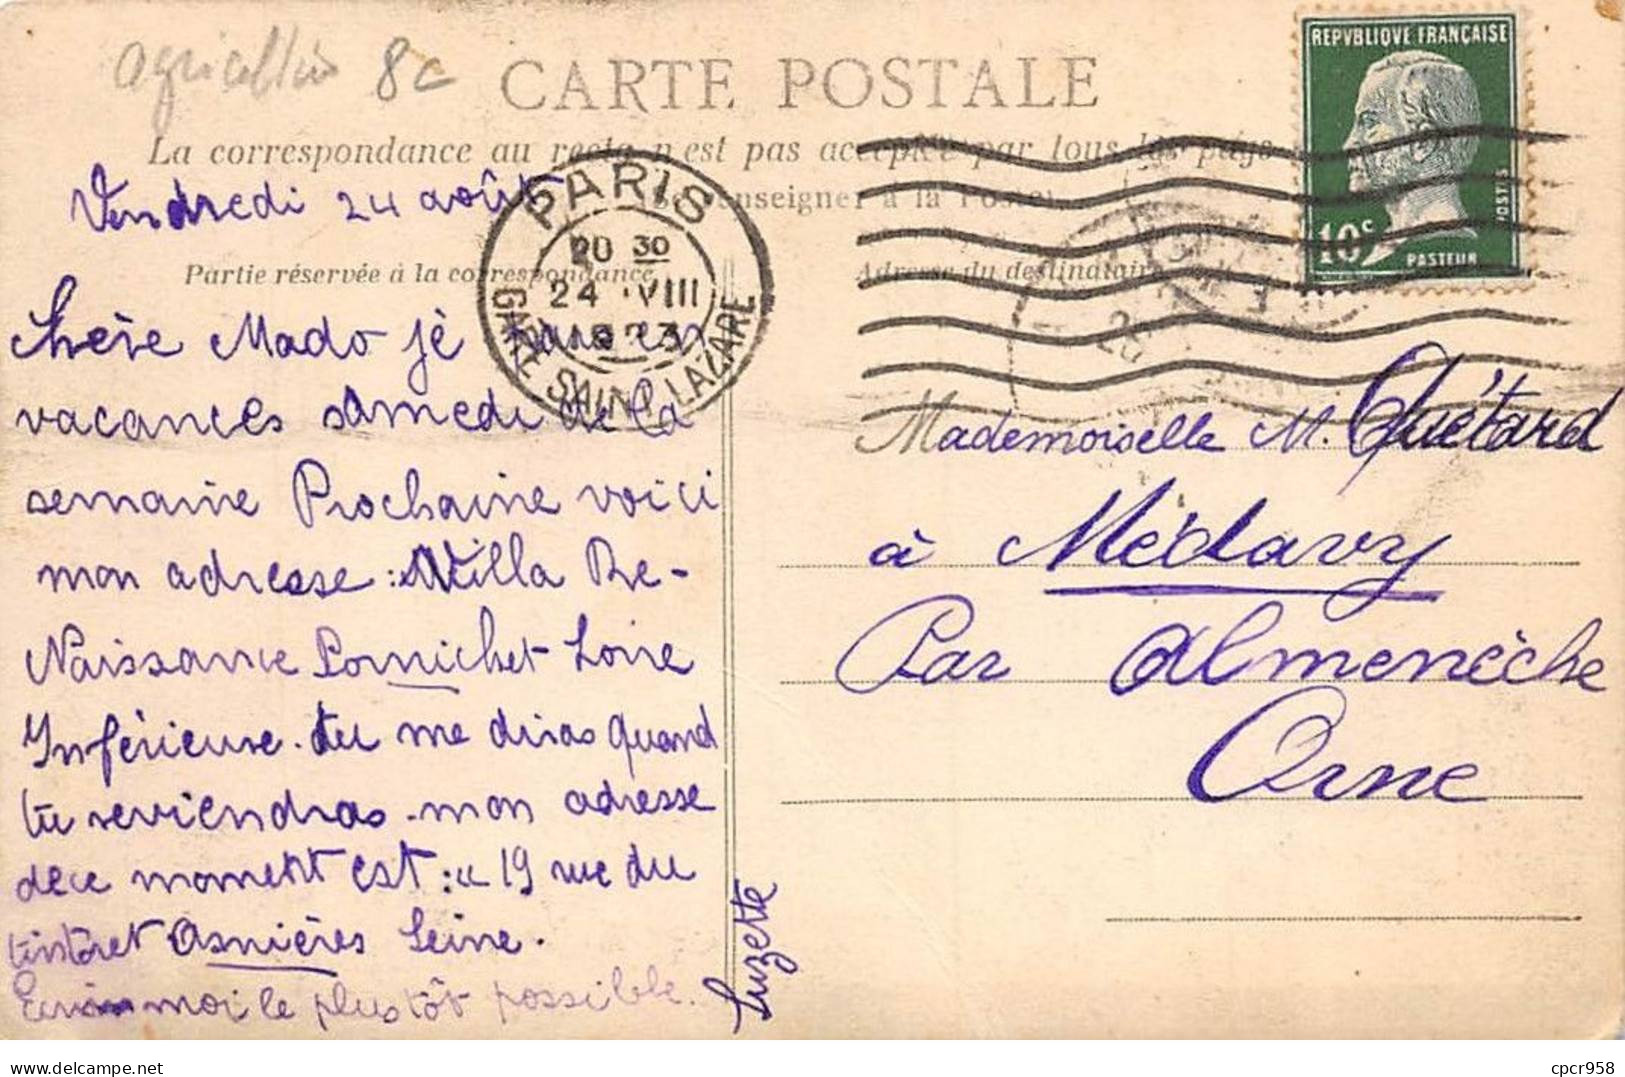 8c
CARTE POSTALE
REPVBLIQVE FRANÇAISE
10c
POSTES
PASTEUR
La correspondance au recto n'est pas acceptée par tous les pays
Se renseigner à la Poste
Vendredi 24 août
PARIS
20 30
24 VIII
1923
GARE SAINT LAZARE
Partie réservée à la correspondance
Adresse du destinataire
Chère Mado je vais en
vacances samedi de la
semaine Prochaine voici
mon adresse : Villa Re-
Naissance Pornichet Loire
Inférieure. tu me diras quand
tu reviendras. mon adresse
de ce moment est : " 19 rue du
tintoret Asnières Seine.
Ecris moi le plus tôt possible.
Suzette
Mademoiselle M. Quétard
à Médavy
Par Almenèche
Orne
Delcampe.net
cpcr958